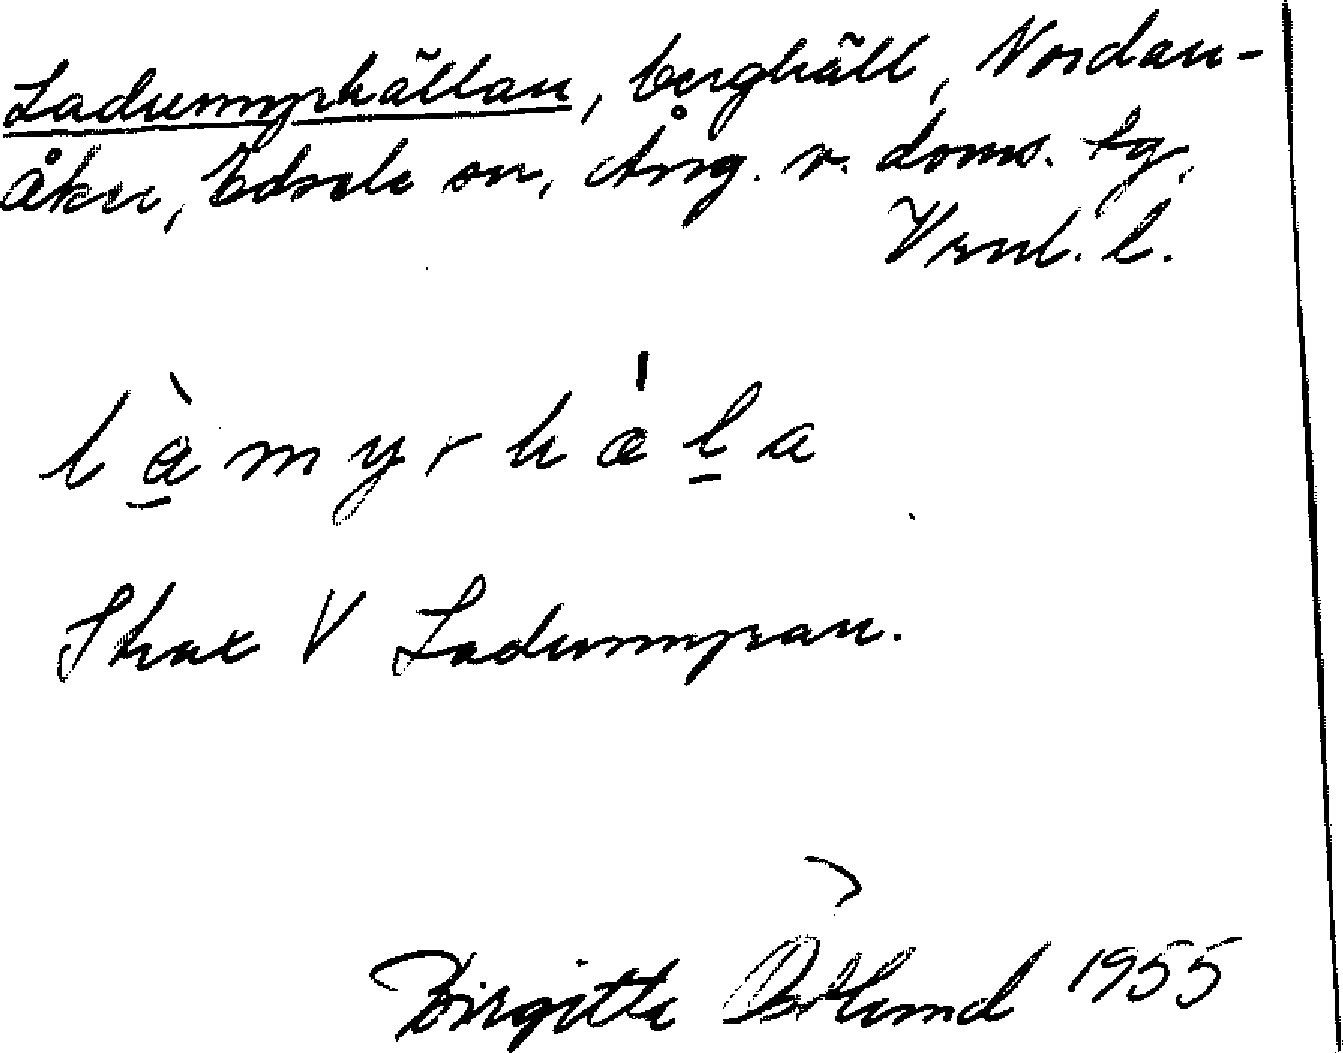 Ladumyrhällan, berghäll, Nordan-
åker, Edsele sn, Ång. v. doms. tg,
Vrnl. l.
làmyrhǽḷa
Strax V Ladumyran.
Birgitta Östlund 1955